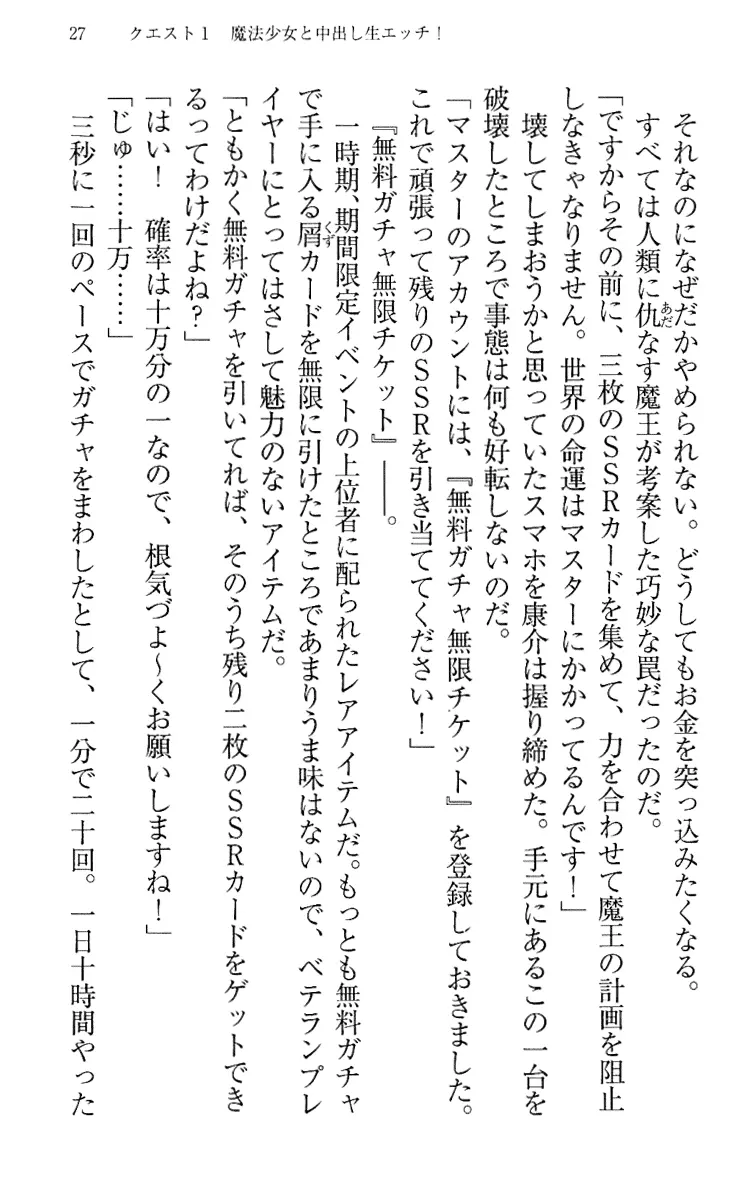 27　クエスト1　魔法少女と中出し生エッチ！
それなのになぜだかやめられない。どうしてもお金を突っ込みたくなる。
すべては人類に仇なす魔王が考案した巧妙な罠だったのだ。
「ですからその前に、三枚のSSRカードを集めて、力を合わせて魔王の計画を阻止
しなきゃなりません。世界の命運はマスターにかかってるんです！」
壊してしまおうかと思っていたスマホを康介は握り締めた。手元にあるこの一台を
破壊したところで事態は何も好転しないのだ。
「マスターのアカウントには、『無料ガチャ無限チケット』を登録しておきました。
これで頑張って残りのSSRを引き当ててください！」
『無料ガチャ無限チケット』――。
一時期、期間限定イベントの上位者に配られたレアアイテムだ。もっとも無料ガチャ
で手に入る屑カードを無限に引けたところであまりうま味はないので、ベテランプレ
イヤーにとってはさして魅力のないアイテムだ。
「ともかく無料ガチャを引いてれば、そのうち残り二枚のSSRカードをゲットでき
るってわけだよね？」
「はい！　確率は十万分の一なので、根気づよ～くお願いしますね！」
「じゅ……十万……」
三秒に一回のペースでガチャをまわしたとして、一分で二十回。一日十時間やった